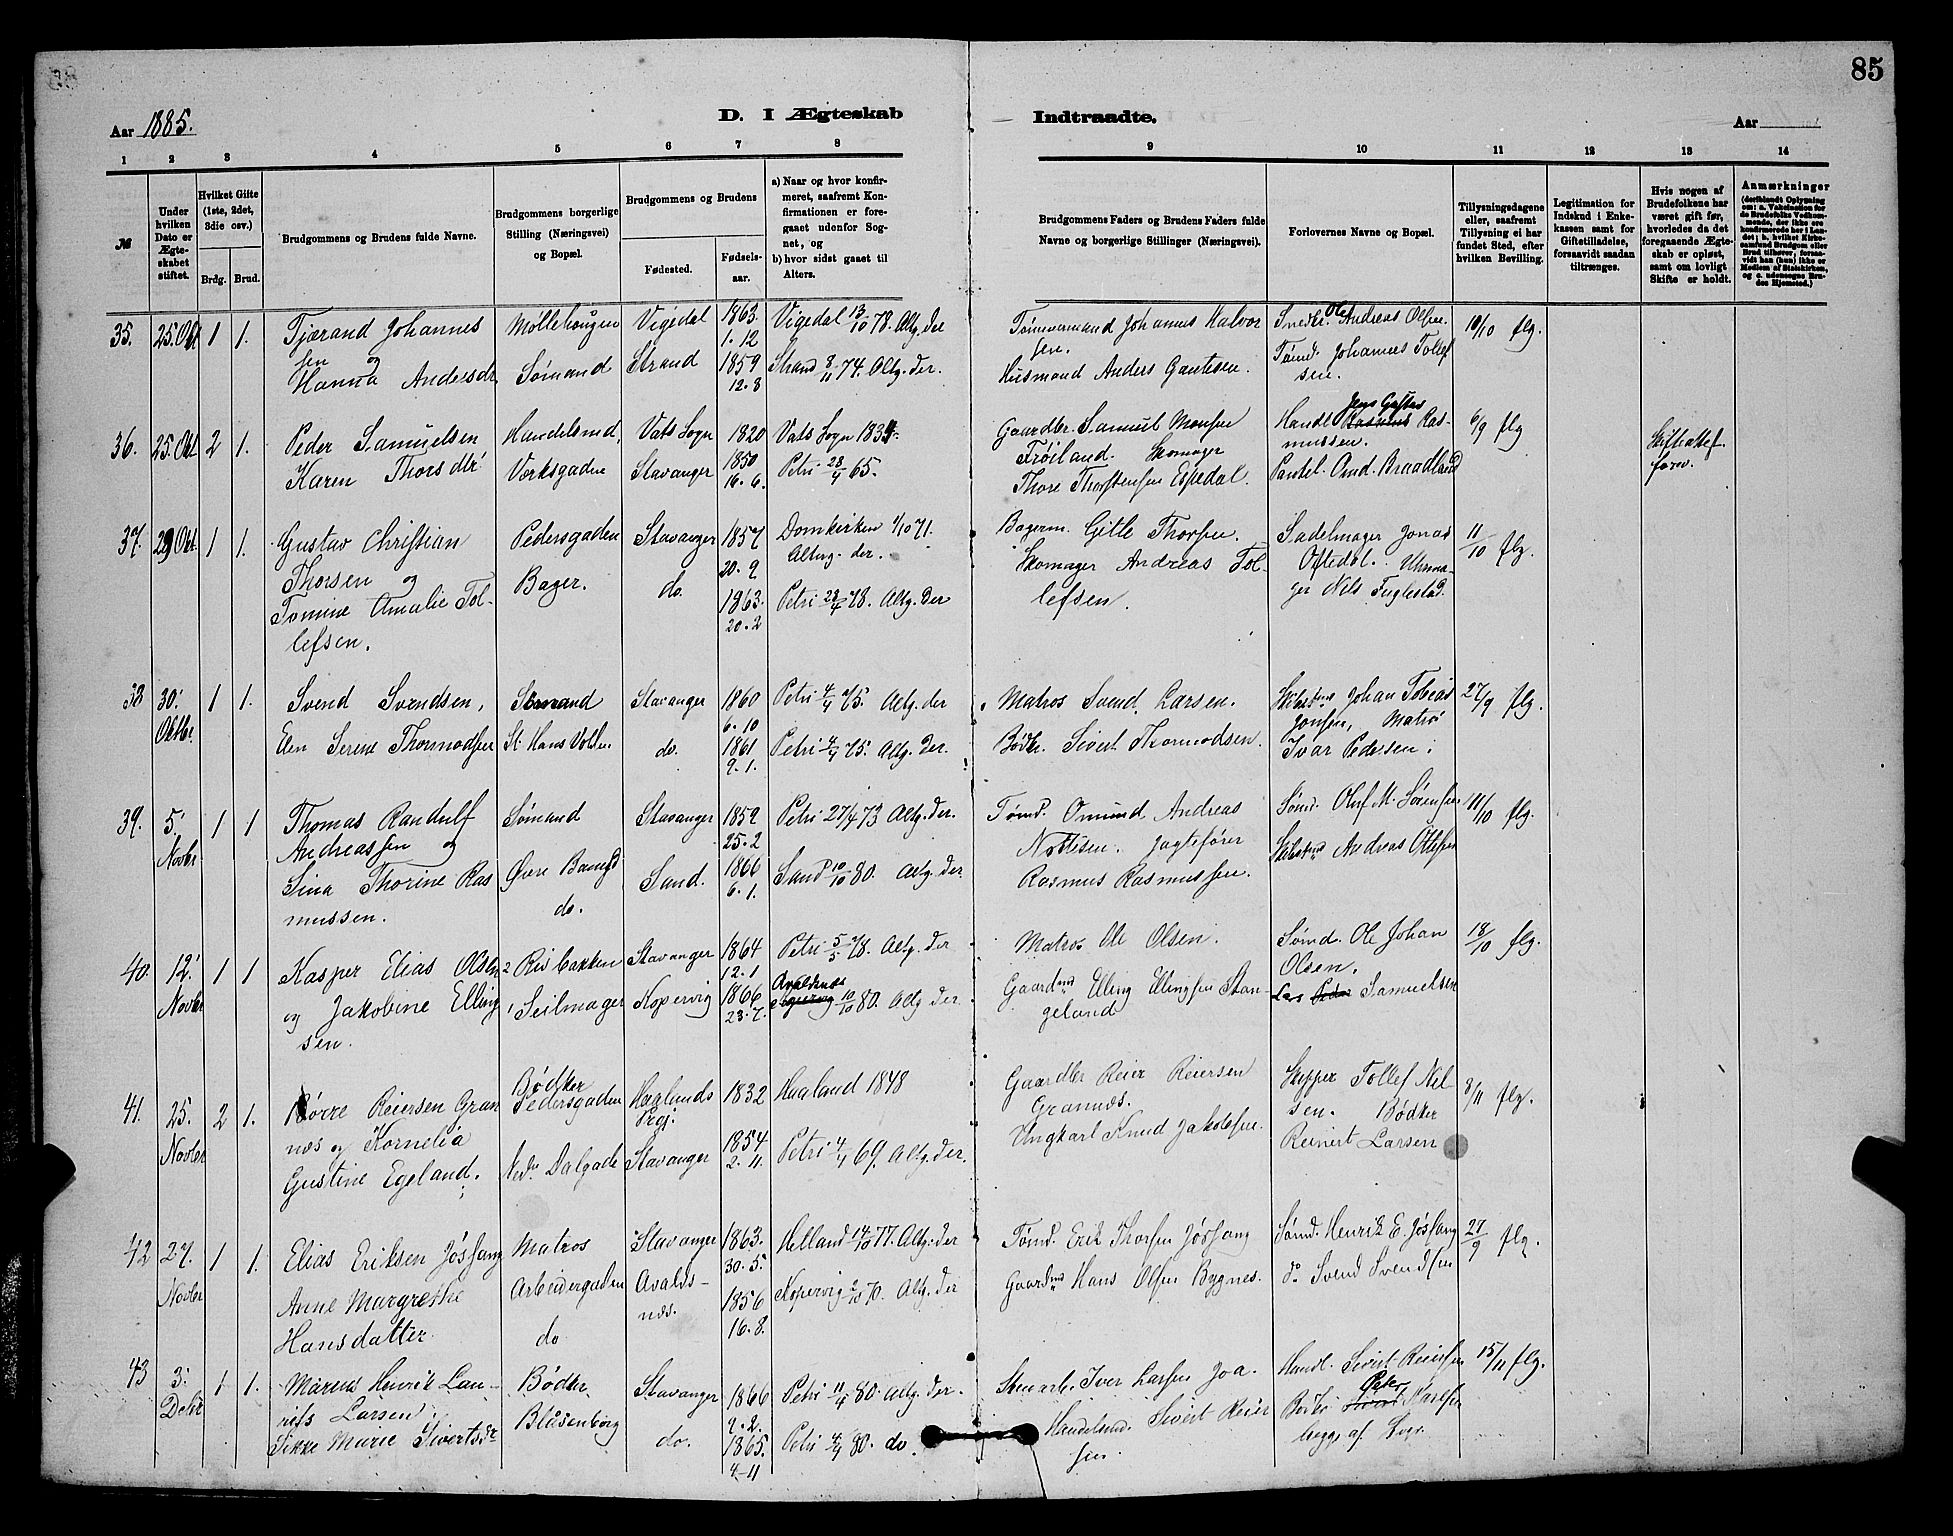 85
Aar 1885.
D. I Ægteskab Indtraadte.
Aar
1 2 3 4 5 6 7 8 9 10 11 12 13 14
№
Under hvilken Dato er Ægteskabet stiftet.
Hvilket Gifte (1ste, 2det, 3die osv.)
Brdg. Brud.
Brudgommens og Brudens fulde Navne.
Brudgommens borgerlige Stilling (Næringsvei) og Bopæl.
Brudgommens og Brudens
Fødested.
Fødselsaar.
a) Naar og hvor konfirmeret, saafremt Konfirmationen er foregaaet udenfor Sognet, og
b) hvor sidst gaaet til Alters.
Brudgommens Faders og Brudens Faders fulde Navne og borgerlige Stillinger (Næringsvei).
Forlovernes Navne og Bopæl.
Tillysningsdagene eller, saafremt Tillysning ei har fundet Sted, efter hvilken Bevilling.
Legitimation for Indskud i Enkekassen samt for Giftetilladelse, forsaavidt saadan tiltrænges.
Hvis nogen af Brudefolkene har været gift før, hvorledes da det foregaaende Ægteskab er opløst, samt om lovligt Skifte er holdt.
Anmærkninger (deriblandt Oplysning om: a. Vakcination for de Brudefolks Vedkommende, der ikke ere konfirmerede her i Landet; b. hvilket Kirkesamfund Brudgom eller Brud tilhører, forsaavidt han (hun) ikke er Medlem af Statskirken, og c. udenbygs Brudes Hjemsted.)
35. 25. Okt 1 1. Tjærand Johannes Møllehougen Vigedal 1863. Vigedal 13/10 78. Altg. der Tømmermand Johannes Halvor Snedkr. Ole Andreas Olsen 10/10 flg.
sen og 1. 12 sen. Tømd. Johannes Tollef
Hanna Andersdr Sømand Strand 1859 Strand 8/11 74. Altg. der. Husmand Anders Gautesen. sen.
12. 8
36. 25. Okt 2 1. Peder Samuelsen Handelsmd, Vats Sogn 1820 Vats Sogn 1834. Gaardbr. Samuel Monsen Handl. Jens Gustav Ras- 6/9 flg Skifteattest
Karen Thorsdtr Verksgaden Stavanger 1850 Petri 23/4 65. Frøiland. Skomager mussen. forev.
16. 6. Thore Thorstensen Espedal. Pantel. Omd. Braadland
37. 29 Okt. 1 1. Gustav Christian Pedersgaden Stavanger 1857 Domkirken 1/10 71. Bagerm. Gitle Thorsen. Sadelmager Jonas 11/10 flg.
Thorsen og Bager. 20. 9 Altng. der. Skomager Andreas Tol- Oftedal. Uhrma-
Tomine Amalie Tol- do. 1863. Petri 28/4 78. Altg. der lefsen. ger Nels Fuglestad.
lefsen. 20. 2
38 30. Oktbr. 1 1. Svend Svendsen, Sømand Stavanger 1860 Petri 4/4 75. Altg. der Matros Svend Larsen. Skibstmd Johan Tobias 27/9 flg.
6. 10 Jonsen, Matros
Elen Serene Thormodsen St. Hans Volden do. 1861 Petri 4/4 75. Altg. der. Bødkr. Sivert Thormodsen. Ivar Pedersen.
9. 1.
39. 5. Novbr 1 1 Thomas Randulf Sømand Stavanger 1859 Petri 27/4 73 Altg. der. Tømd. Omund Andreas Sømd. Oluf M. Sørensen 11/10 flg.
Andreassen og 25. 2 Jagtefører Skibstmd Andreas Ottesen
Sina Thorine Ras Øvre Sand. 1866 Sand 10/10 80. Altg. der. Rasmus Rasmussen.
mussen. do. 6. 1.
40. 12. Novbr 1 1 Kasper Elias Olsen 2 Risbakken Stavanger 1864 Petri 5/5 78. Altg. der Matros Ole Olsen. Sømd. Ole Johan 18/10 flg.
12. 1 Avaldsnes Olsen.
og Jakobine Elling 1 Seilmager Kopervig 1866 10/10 80. Altg der Gaardmd Elling Ellingsen Stan- Lars Samuelsen
sen. 23. 7. geland
41. 25. Novbr 2 1. Børre Reiersen Gran Bødker Pedersgaden Haglands Prgj. 1832 Haaland 1848 Gaardbr Reier Reiersen Skipper Tollef Nil- 8/11 flg.
næs og Kornelia Grannæs. sen. Bødker
Gustine Egeland. Nedr. Dalgade Stavanger 1854 Petri 4/4 69. Altg. der. Ungkarl Knud Jakobsen. Reinert Larsen
2. 11.
42 27. Novbr 1 1. Elias Eriksen Jøssang Matros Stavanger 1863. Helland 14/10 77. Altg. der Tømd. Erik Thorsen Jøssang Sømd. Henrik E. Jøssang 27/9 flg.
30. 5.
Anne Margrethe Arbeidergaden Avalds- 1856 Kopervig 2/10 70. Altg. der Gaardmd Hans Olsen Bygnes. do Svend Svendsen
Hansdatter do næs. 16. 8.
43 3. Debr 1 1. Marius Henrik Lau- Bødker Stavanger 1866 Petri 11/4 80. Altg. der. Stenarb. Iver Larsen Joa. Handl. Sivert Reiersen 15/11 flg.
rits Larsen Blåsenborg 9. 2. Peter
Sikke Marie Sivertsdr do. 1865. Petri 4/4 80. do. Handelsmd. Sivert Reier Bødkr. Karlsen
4-11 sen begge af Svgr.